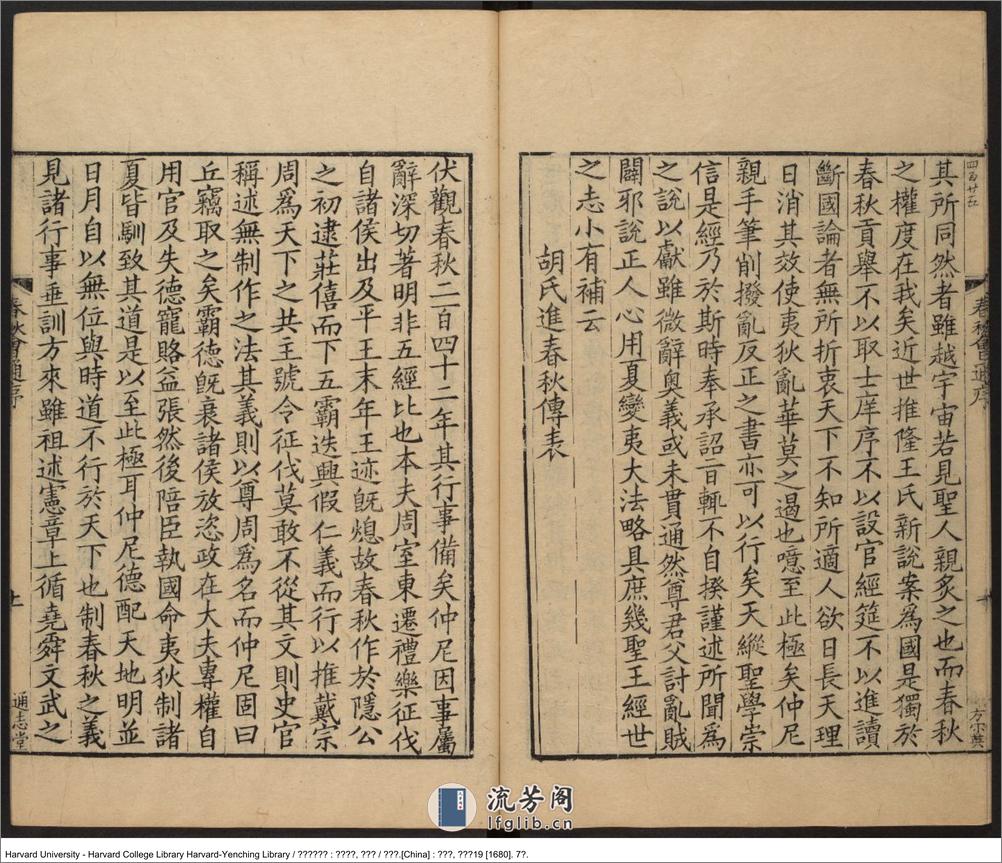 四百廿五
其所同然者雖越宇宙若見聖人親炙之也而春秋
之權度在我矣近世推隆王氏新說案爲國是獨於
春秋貢舉不以取士庠序不以設官經筵不以進讀
斷國論者無所折衷天下不知所適人欲日長天理
日消其效使夷狄亂華莫之遏也噫至此極矣仲尼
親手筆削撥亂反正之書亦可以行矣天縱聖學崇
信是經乃於斯時奉承詔旨輒不自揆謹述所聞爲
之說以獻雖微辭奥義或未貫通然尊君父討亂賊
闢邪說正人心用夏變夷大法略具庶幾聖王經世
之志小有補云
胡氏進春秋傳表
伏觀春秋二百四十二年其行事備矣仲尼因事屬
辭深切著明非五經比也本夫周室東遷禮樂征伐
自諸侯出及平王末年王迹旣熄故春秋作於隱公
之初逮莊僖而下五霸迭興假仁義而行以推戴宗
周爲天下之共主號令征伐莫敢不從其文則史官
稱述無制作之法其義則以尊周爲名而仲尼固曰
丘竊取之矣霸德旣衰諸侯放恣政在大夫專權自
用官及失德寵賂益張然後陪臣執國命夷狄制諸
夏皆馴致其道是以至此極耳仲尼德配天地明並
日月自以無位與時道不行於天下也制春秋之義
見諸行事垂訓方來雖祖述憲章上循堯舜文武之
春秋會通序
通志堂
流芳阁
lfglib.cn
Harvard University - Harvard College Library Harvard-Yenching Library / ?????? : ????, ??? / ???.[China] : ???, ???19 [1680]. 7?.